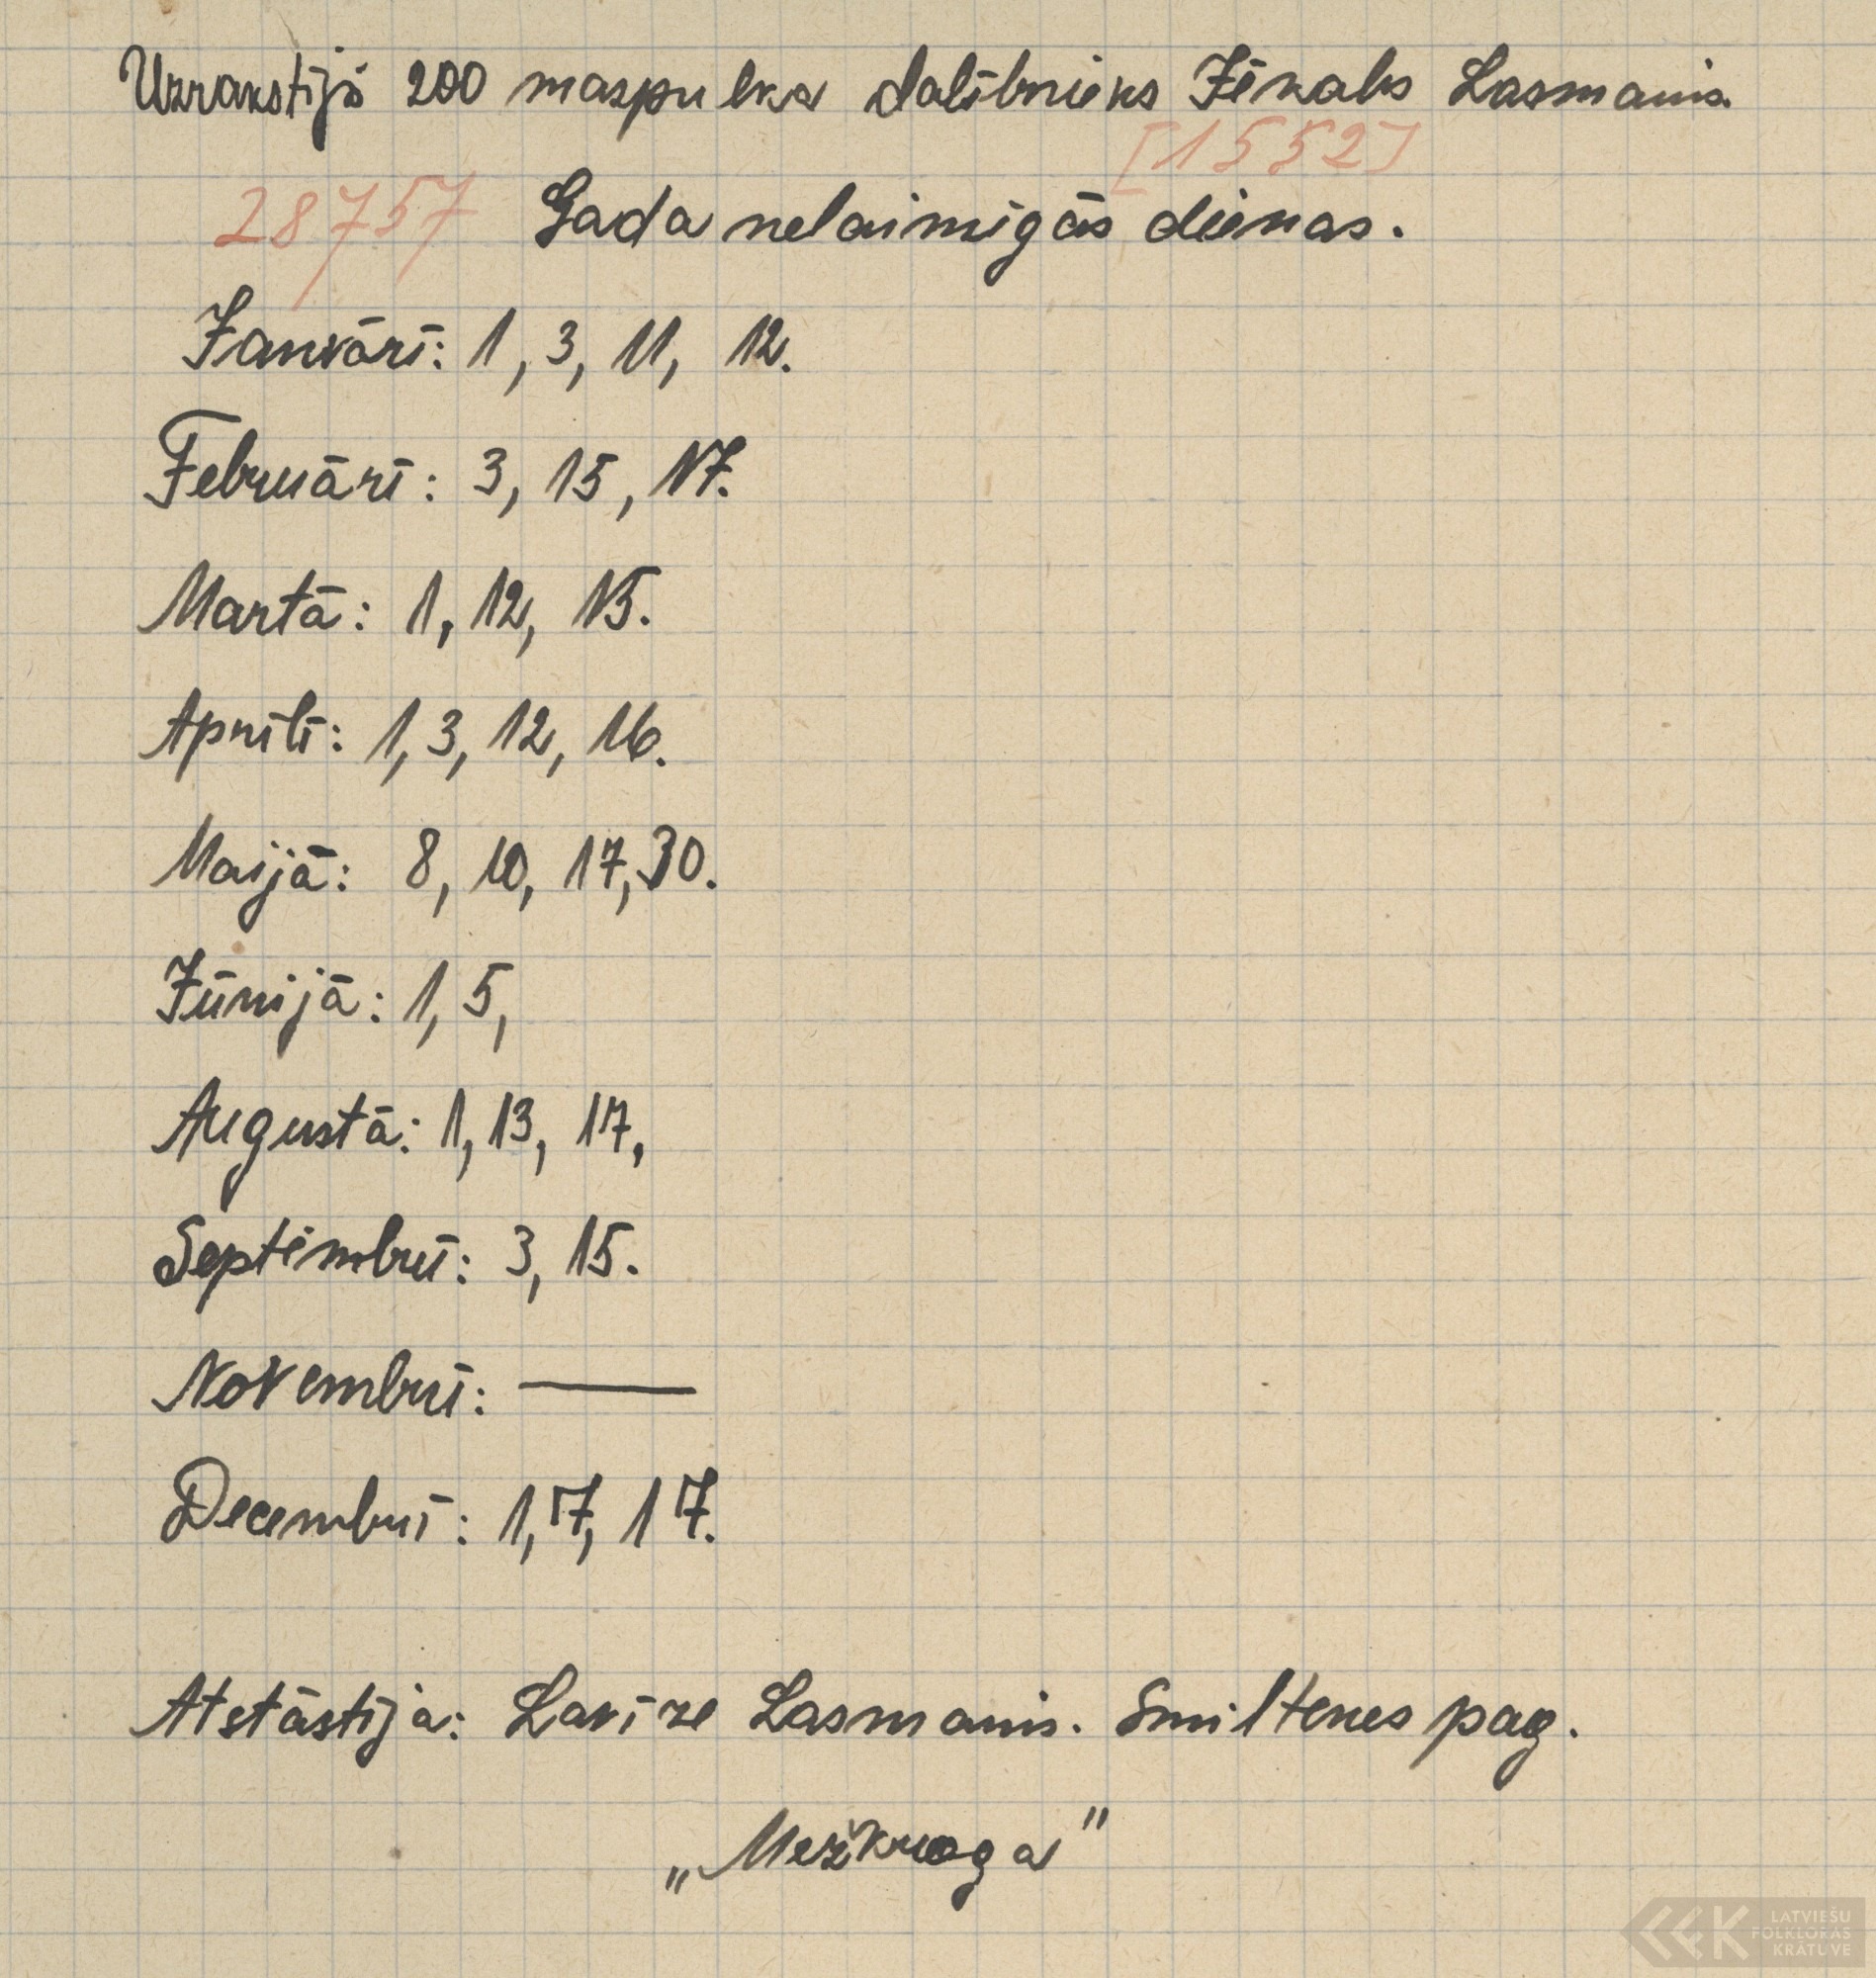 Uzrakstījā 200 mazpulka dalībnieks Jēkabs Lasmanis.
[1552]
28757 Gada nelaimīgās dienas.
Janvārī: 1, 3, 11, 12.
Februārī: 3, 15, 17.
Martā: 1, 12, 15.
Aprīlī: 1, 3, 12, 16.
Maijā: 8, 10, 17, 30.
Jūnijā: 1, 5,
Augustā: 1, 13, 17,
Septembrī: 3, 15.
Novembrī: —
Decembrī: 1, 7, 17.
Atstāstīja: Lavīze Lasmanis. Smiltenes pag.
„Mežkroga”
LATVIEŠU
FOLKLORAS
KRĀTUVE